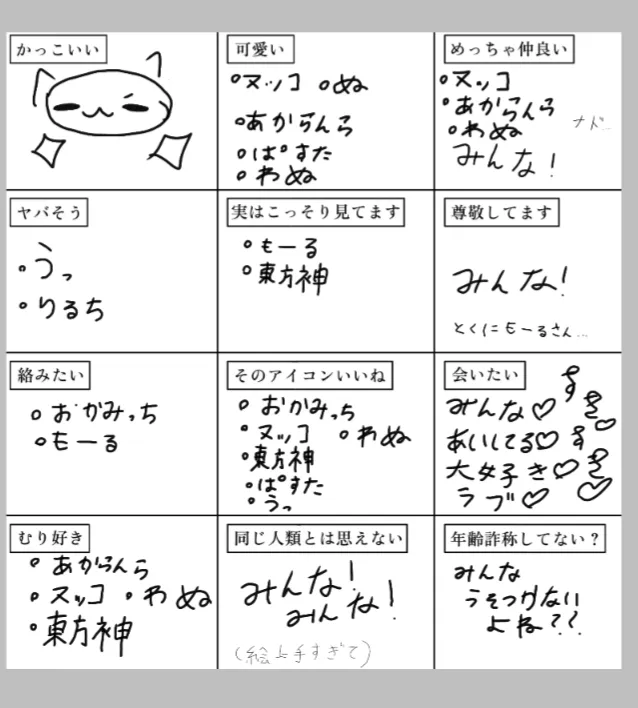 かっこいい
可愛い
◦ヌッコ ◦ぬ
◦あからんら
◦ぱすた
◦わぬ
めっちゃ仲良い
◦ヌッコ
◦あからんら
◦わぬ
ナド…
みんな!
ヤバそう
◦うっ
◦りるち
実はこっそり見てます
◦もーる
◦東方神
尊敬してます
みんな!
とくにもーるさん…
絡みたい
◦おかみっち
◦もーる
そのアイコンいいね
◦おかみっち
◦ヌッコ ◦わぬ
◦東方神
◦ぱすた
◦うっ
会いたい
みんな♡
あいしてる♡
大好き♡
ラブ♡
すき♡
すき♡
むり好き
◦あからんら
◦ヌッコ ◦わぬ
◦東方神
同じ人類とは思えない
みんな!
みんな!
(絵上手すぎて)
年齢詐称してない?
みんな
うそつかない
よね??